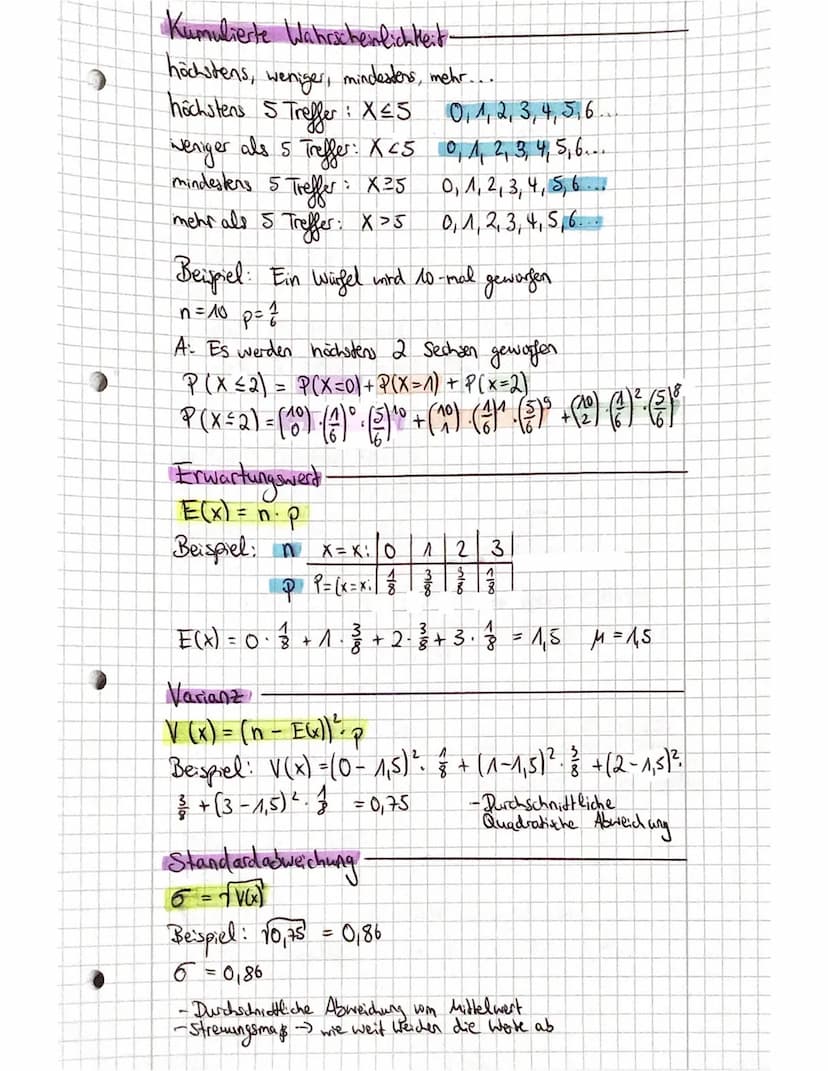 Kumulierte Wahrscheinlichkeit
höchstens, weniger, mindestens, mehr...
höchstens 5 Treffer: X≤5 0, 1, 2, 3, 4, 5, 6...
weniger als 5 Treffer: X<5 0, 1, 2, 3, 4, 5, 6...
mindestens 5 Treffer: X≥5 0, 1, 2, 3, 4, 5, 6...
mehr als 5 Treffer: X>5 0, 1, 2, 3, 4, 5, 6...
Beispiel: Ein Würfel wird 10-mal geworfen
n=10 p=1/6
A: Es werden höchstens 2 Sechsen geworfen
P(X≤2) = P(X=0) + P(X=1) + P(X=2)
P(X≤2) = (10 0)·(1/6)^0·(5/6)^10 + (10 1)·(1/6)^1·(5/6)^9 + (10 2)·(1/6)^2·(5/6)^8
Erwartungswert
E(x) = n·p
Beispiel: n X=x: 0 1 2 3
p P=(x=x: 1/8 3/8 3/8 1/8
E(x) = 0·1/8 + 1·3/8 + 2·3/8 + 3·1/8 = 1,5 μ=1,5
Varianz
V(x) = (n - E(x))²·p
Beispiel: V(x) = (0-1,5)²·1/8 + (1-1,5)²·3/8 + (2-1,5)²·
3/8 + (3-1,5)²·1/8 = 0,75 - Durchschnittliche
Quadratische Abweichung
Standardabweichung
σ = √V(x)
Beispiel: √0,75 = 0,86
σ = 0,86
- Durchschnittliche Abweichung vom Mittelwert
- Streuungsmaß → wie weit weichen die Werte ab